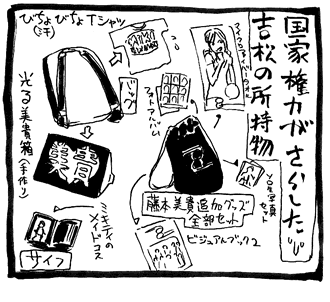 国家権力がさらした
吉松の所持物
びちょびちょTシャツ
(汗)
バッグ
マイクロファイバータオル
フォトアルバム
光る美貴箱(手作り)
美貴
藤本美貴追加グッズ
全部セット
写真
セット
ミキティの
メイドコス
サイフ
ビジュアルブック2